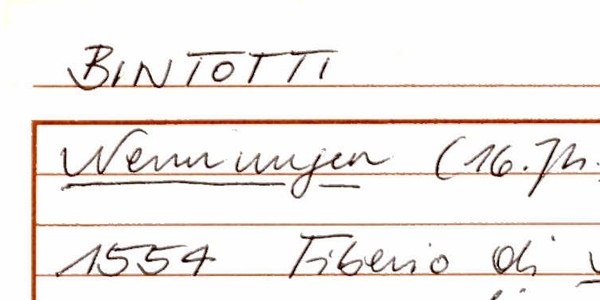 BINTOTTI
Nennungen (16. Jh.
1554 Tiberio di